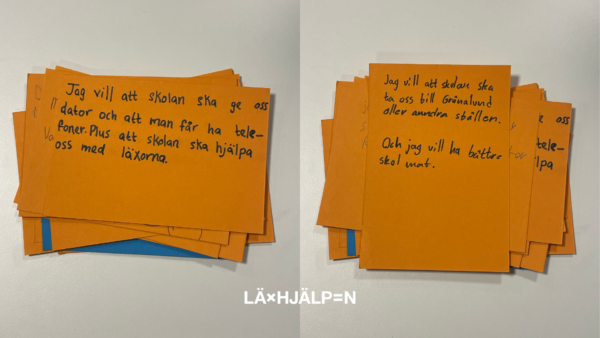 Jag vill att skolan ska ge oss
dator och att man får ha tele-
foner. Plus att skolan ska hjälpa
oss med läxorna.
Jag vill att skolan ska
ta oss till Grönalund
eller anndra ställen.
Och jag vill ha bättre
skol mat.
ge oss
tele-
lpa
LÄ×HJÄLP=N